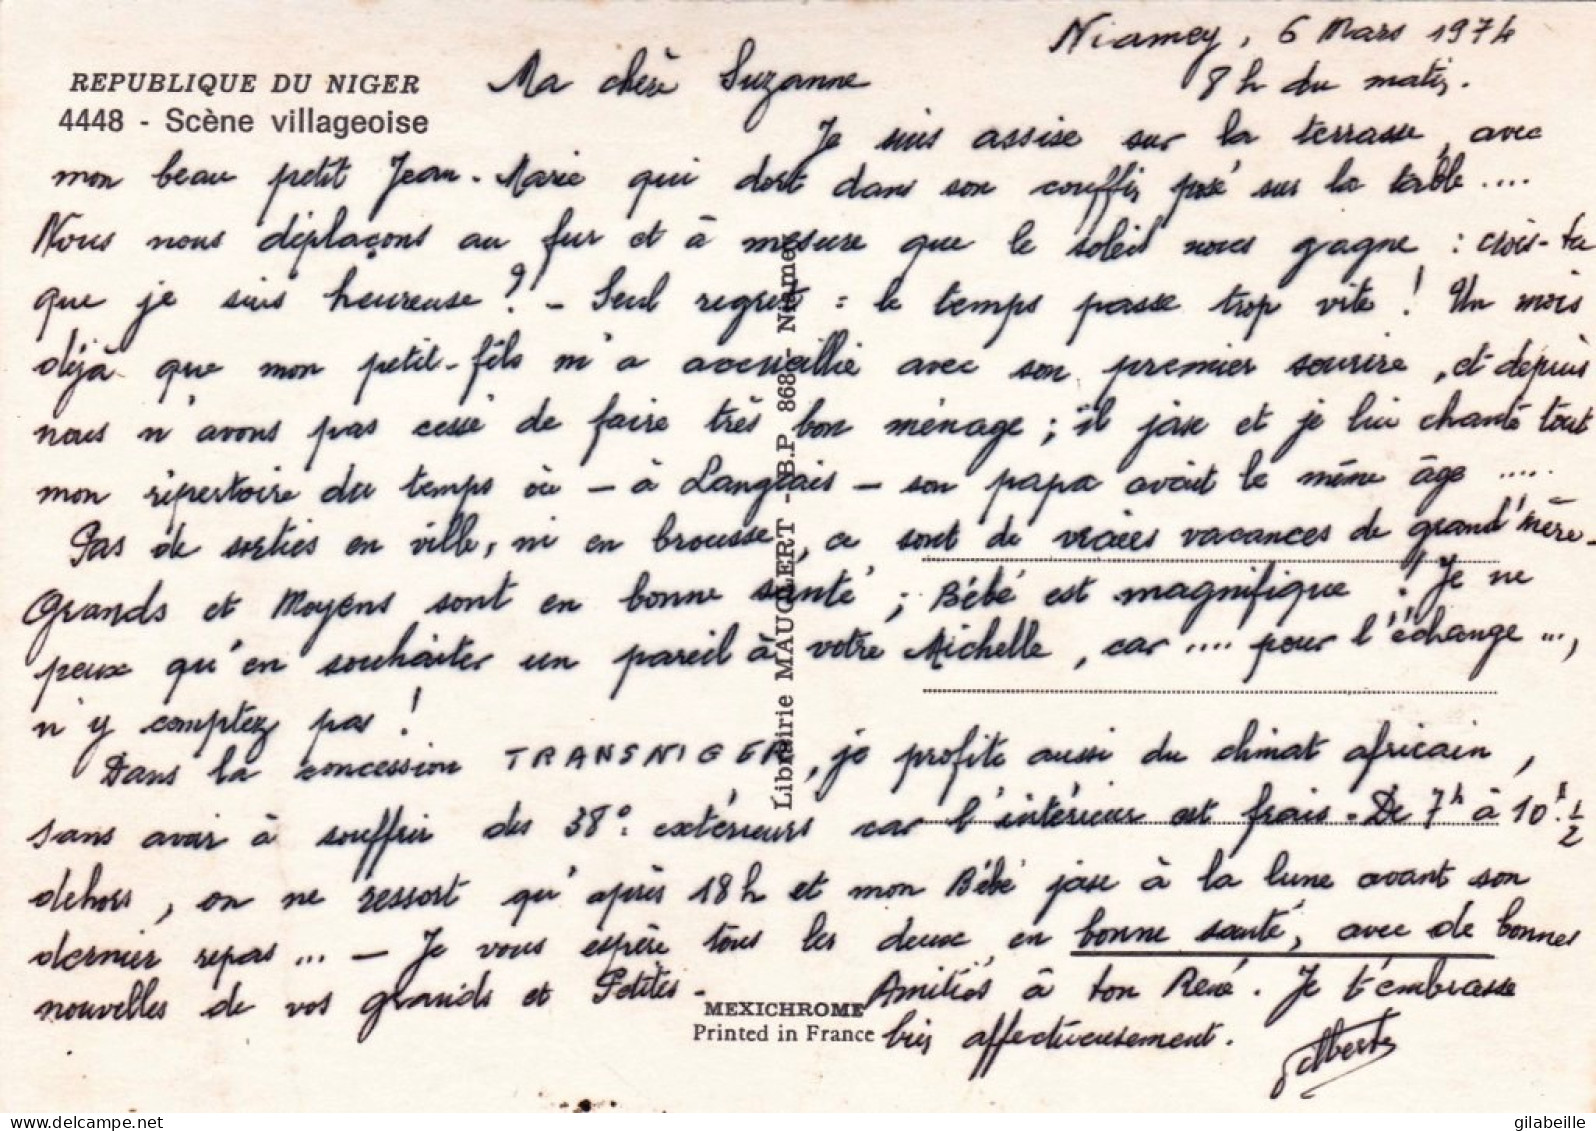 Niamey, 6 Mars 1974
8 h du matin.
REPUBLIQUE DU NIGER
4448 - Scène villageoise
Ma chère Suzanne
Je suis assise sur la terrasse, avec
mon beau petit Jean-Marie qui dort dans son couffin posé sur la table ....
Nous nous déplaçons au fur et à mesure que le soleil nous gagne : crois-tu
que je suis heureuse ? - Seul regret : le temps passe trop vite ! Un mois
déjà que mon petit-fils m'a accueillie avec son premier sourire, et depuis
nous n'avons pas cessé de faire très bon ménage ; il jase et je lui chante tout
mon répertoire du temps où - à Langlais - son papa avait le même âge ....
Pas de sorties en ville, ni en brousse, ce sont de vraies vacances de grand'mère -
Grands et Moyens sont en bonne santé ; Bébé est magnifique ! Je ne
peux qu'en souhaiter un pareil à votre Michelle, car .... pour l'échange ...,
n'y comptez pas !
Dans la concession TRANSNIGER, je profite aussi du climat africain,
sans avoir à souffrir des 38° extérieurs car l'intérieur est frais - De 7h à 10h 1/2
dehors, on ne ressort qu'après 18 h et mon Bébé jase à la lune avant son
dernier repas ... - Je vous espère tous les deux en bonne santé, avec de bonnes
nouvelles de vos grands et Petites - Amitiés à ton René. Je t'embrasse
bien affectueusement.
Gilberte
Librairie MAUCLERT - B.P. 868 - Niamey
MEXICHROME
Printed in France
gilabeille